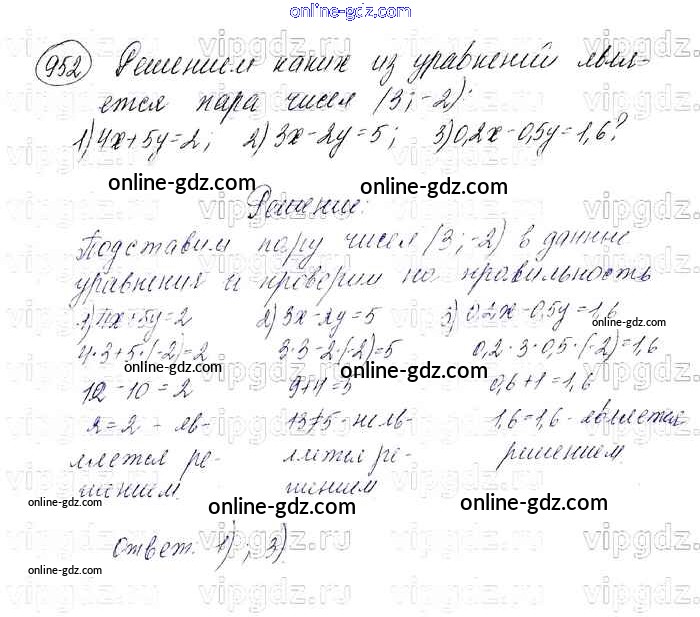 online-gdz.com
952 Решением каких из уравнений явля-
ется пара чисел (3;-2):
1) 4x+5y=2; 2) 3x-2y=5; 3) 0,2x-0,5y=1,6?
online-gdz.com online-gdz.com
Решение:
Подставим пару чисел (3;-2) в данные
уравнения и проверим на правильность
1) 4x+5y=2 2) 3x-2y=5 3) 0,2x-0,5y=1,6
online-gdz.com
4·3+5·(-2)=2 3·3-2·(-2)=5 0,2·3-0,5·(-2)=1,6
online-gdz.com online-gdz.com
12-10=2 9+4=5 0,6+1=1,6
2=2 - яв- 13≠5 - не яв- 1,6=1,6 - является
online-gdz.com
ляется ре- ляется ре- решением.
шением. шением
online-gdz.com online-gdz.com online-gdz.com
Ответ: 1); 3)
online-gdz.com
vipgdz.ru